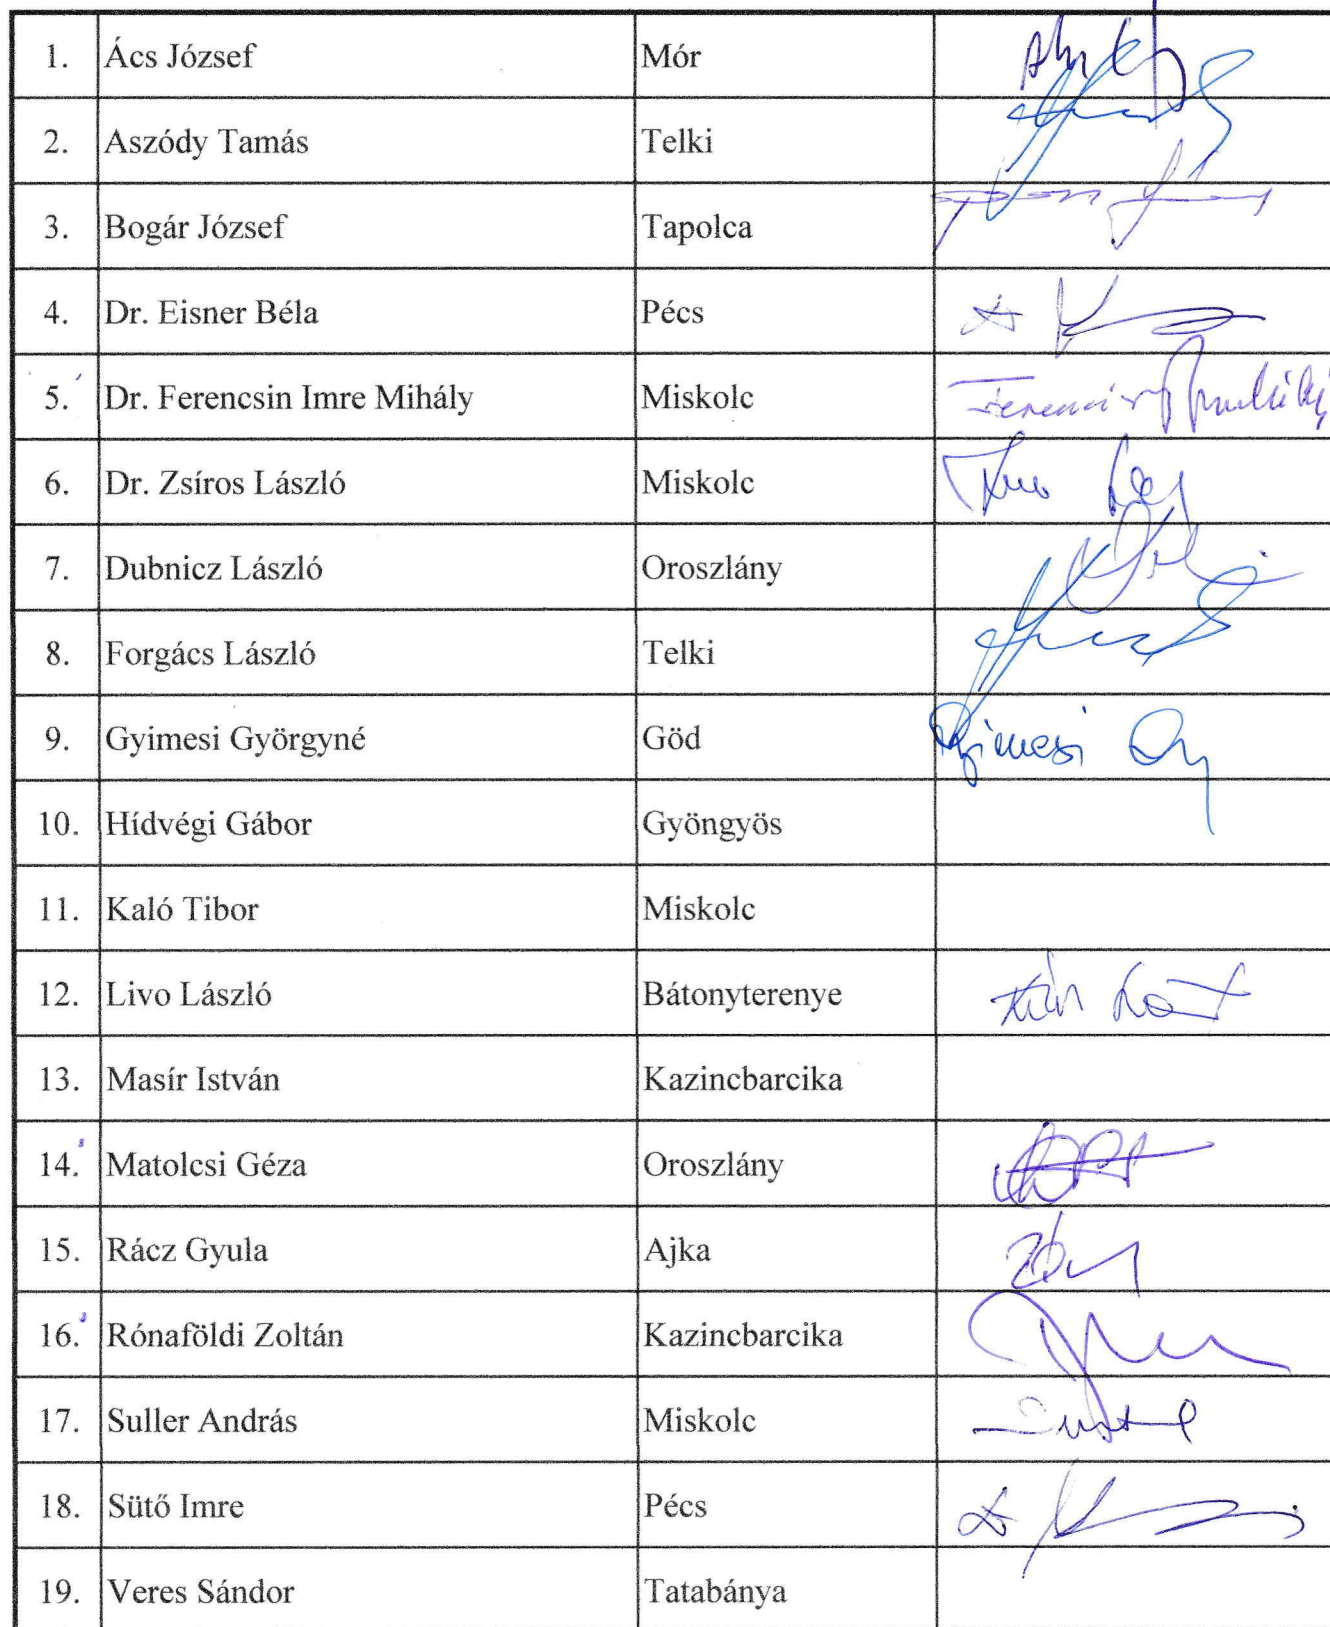 1. Ács József Mór
2. Aszódy Tamás Telki
3. Bogár József Tapolca
4. Dr. Eisner Béla Pécs
5. Dr. Ferencsin Imre Mihály Miskolc
6. Dr. Zsíros László Miskolc
7. Dubnicz László Oroszlány
8. Forgács László Telki
9. Gyimesi Györgyné Göd Gyimesi Gy
10. Hídvégi Gábor Gyöngyös
11. Kaló Tibor Miskolc
12. Livo László Bátonyterenye
13. Masír István Kazincbarcika
14. Matolcsi Géza Oroszlány
15. Rácz Gyula Ajka
16. Rónaföldi Zoltán Kazincbarcika
17. Suller András Miskolc
18. Sütő Imre Pécs
19. Veres Sándor Tatabánya